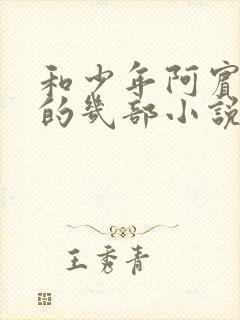 和少年阿賓
的幾部小說
王秀青